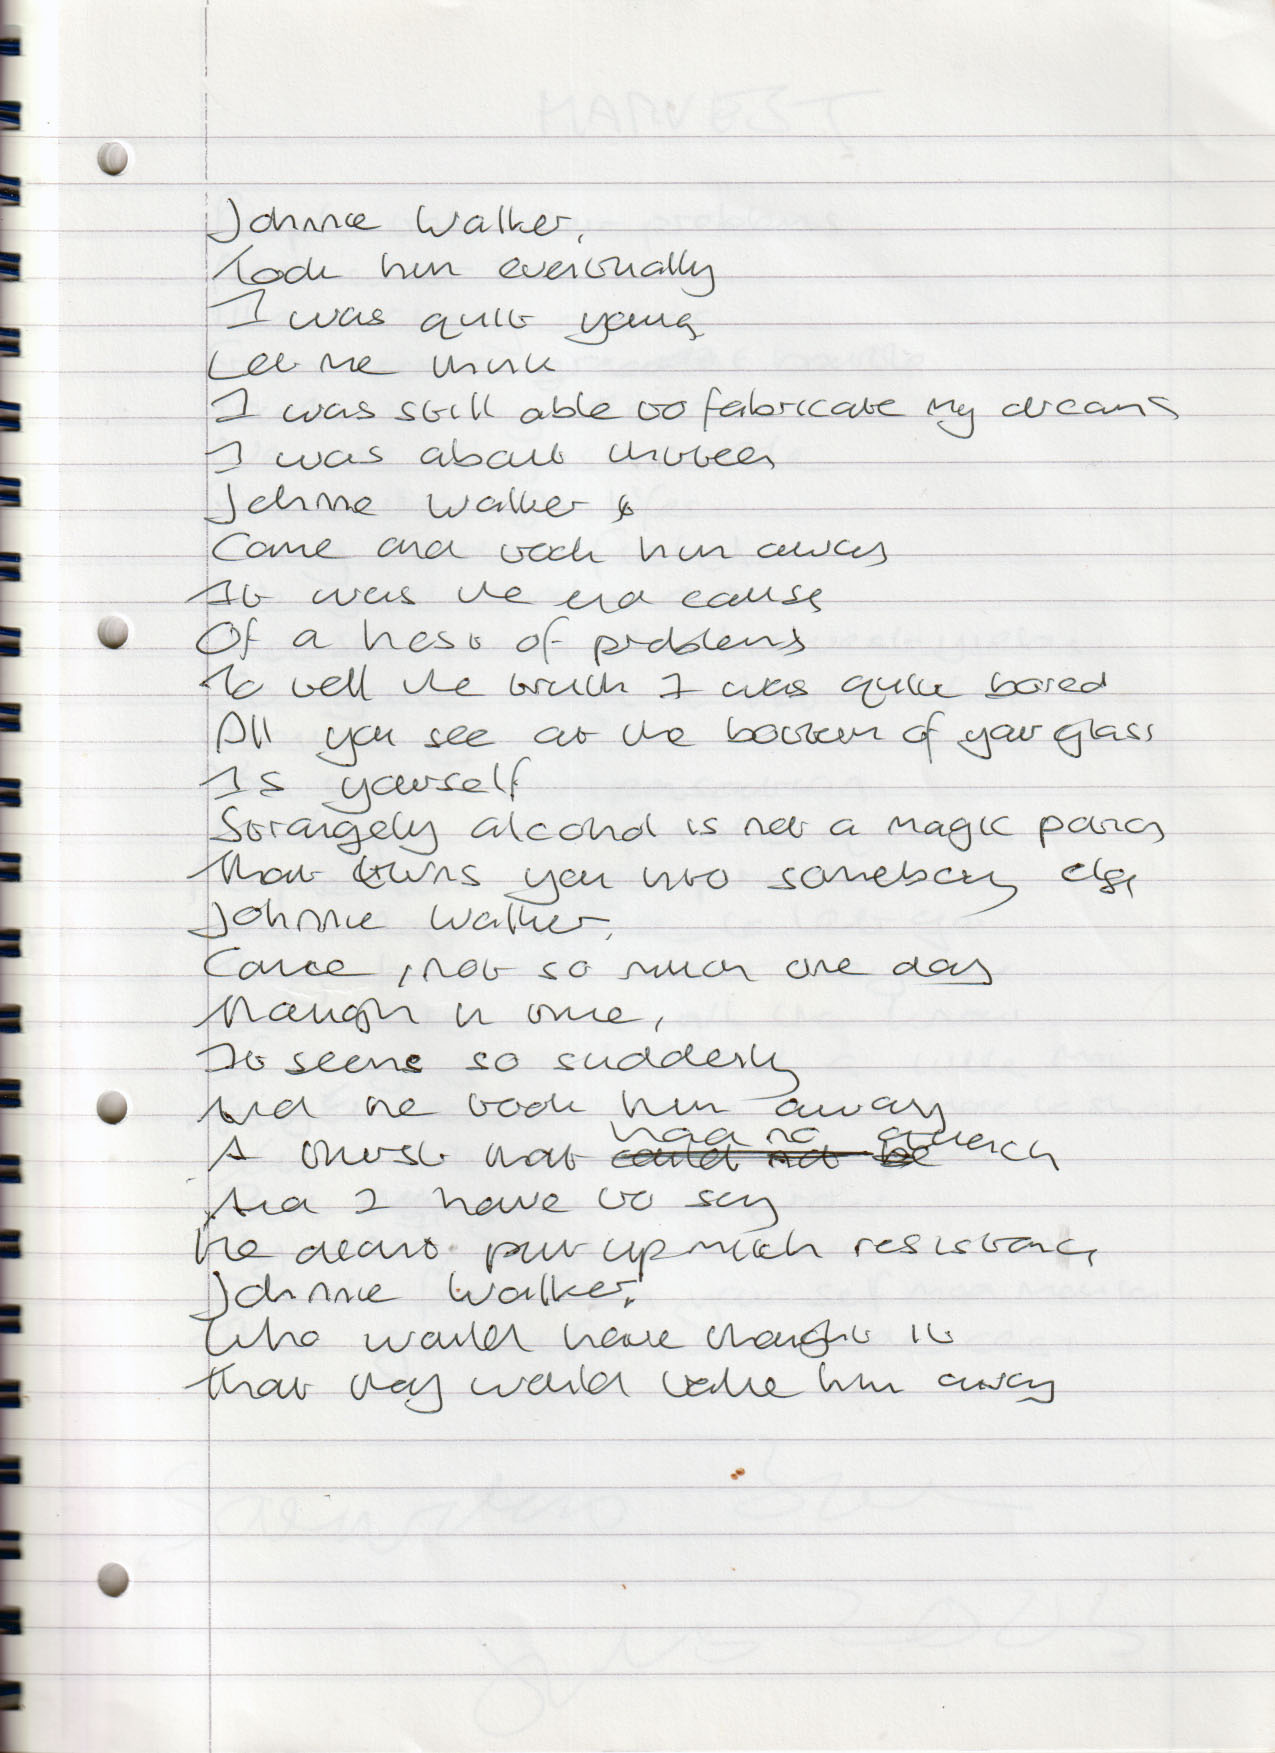 Johnnie Walker,
Took him eventually
I was quite young
Let me think
I was still able to fabricate my dreams
I was about thirteen
Johnnie Walker
Came and took him away
It was the end cause
Of a host of problems
To tell the truth I was quite bored
All you see at the bottom of your glass
Is yourself
Strangely alcohol is not a magic potion
That turns you into somebody else
Johnnie Walker,
Came, not so much one day
though in time,
It seems so suddenly
And he took him away
had no quench
A thirst that could not be
And I have to say
He didn't put up much resistance
Johnnie Walker,
Who would have thought it
That they would take him away